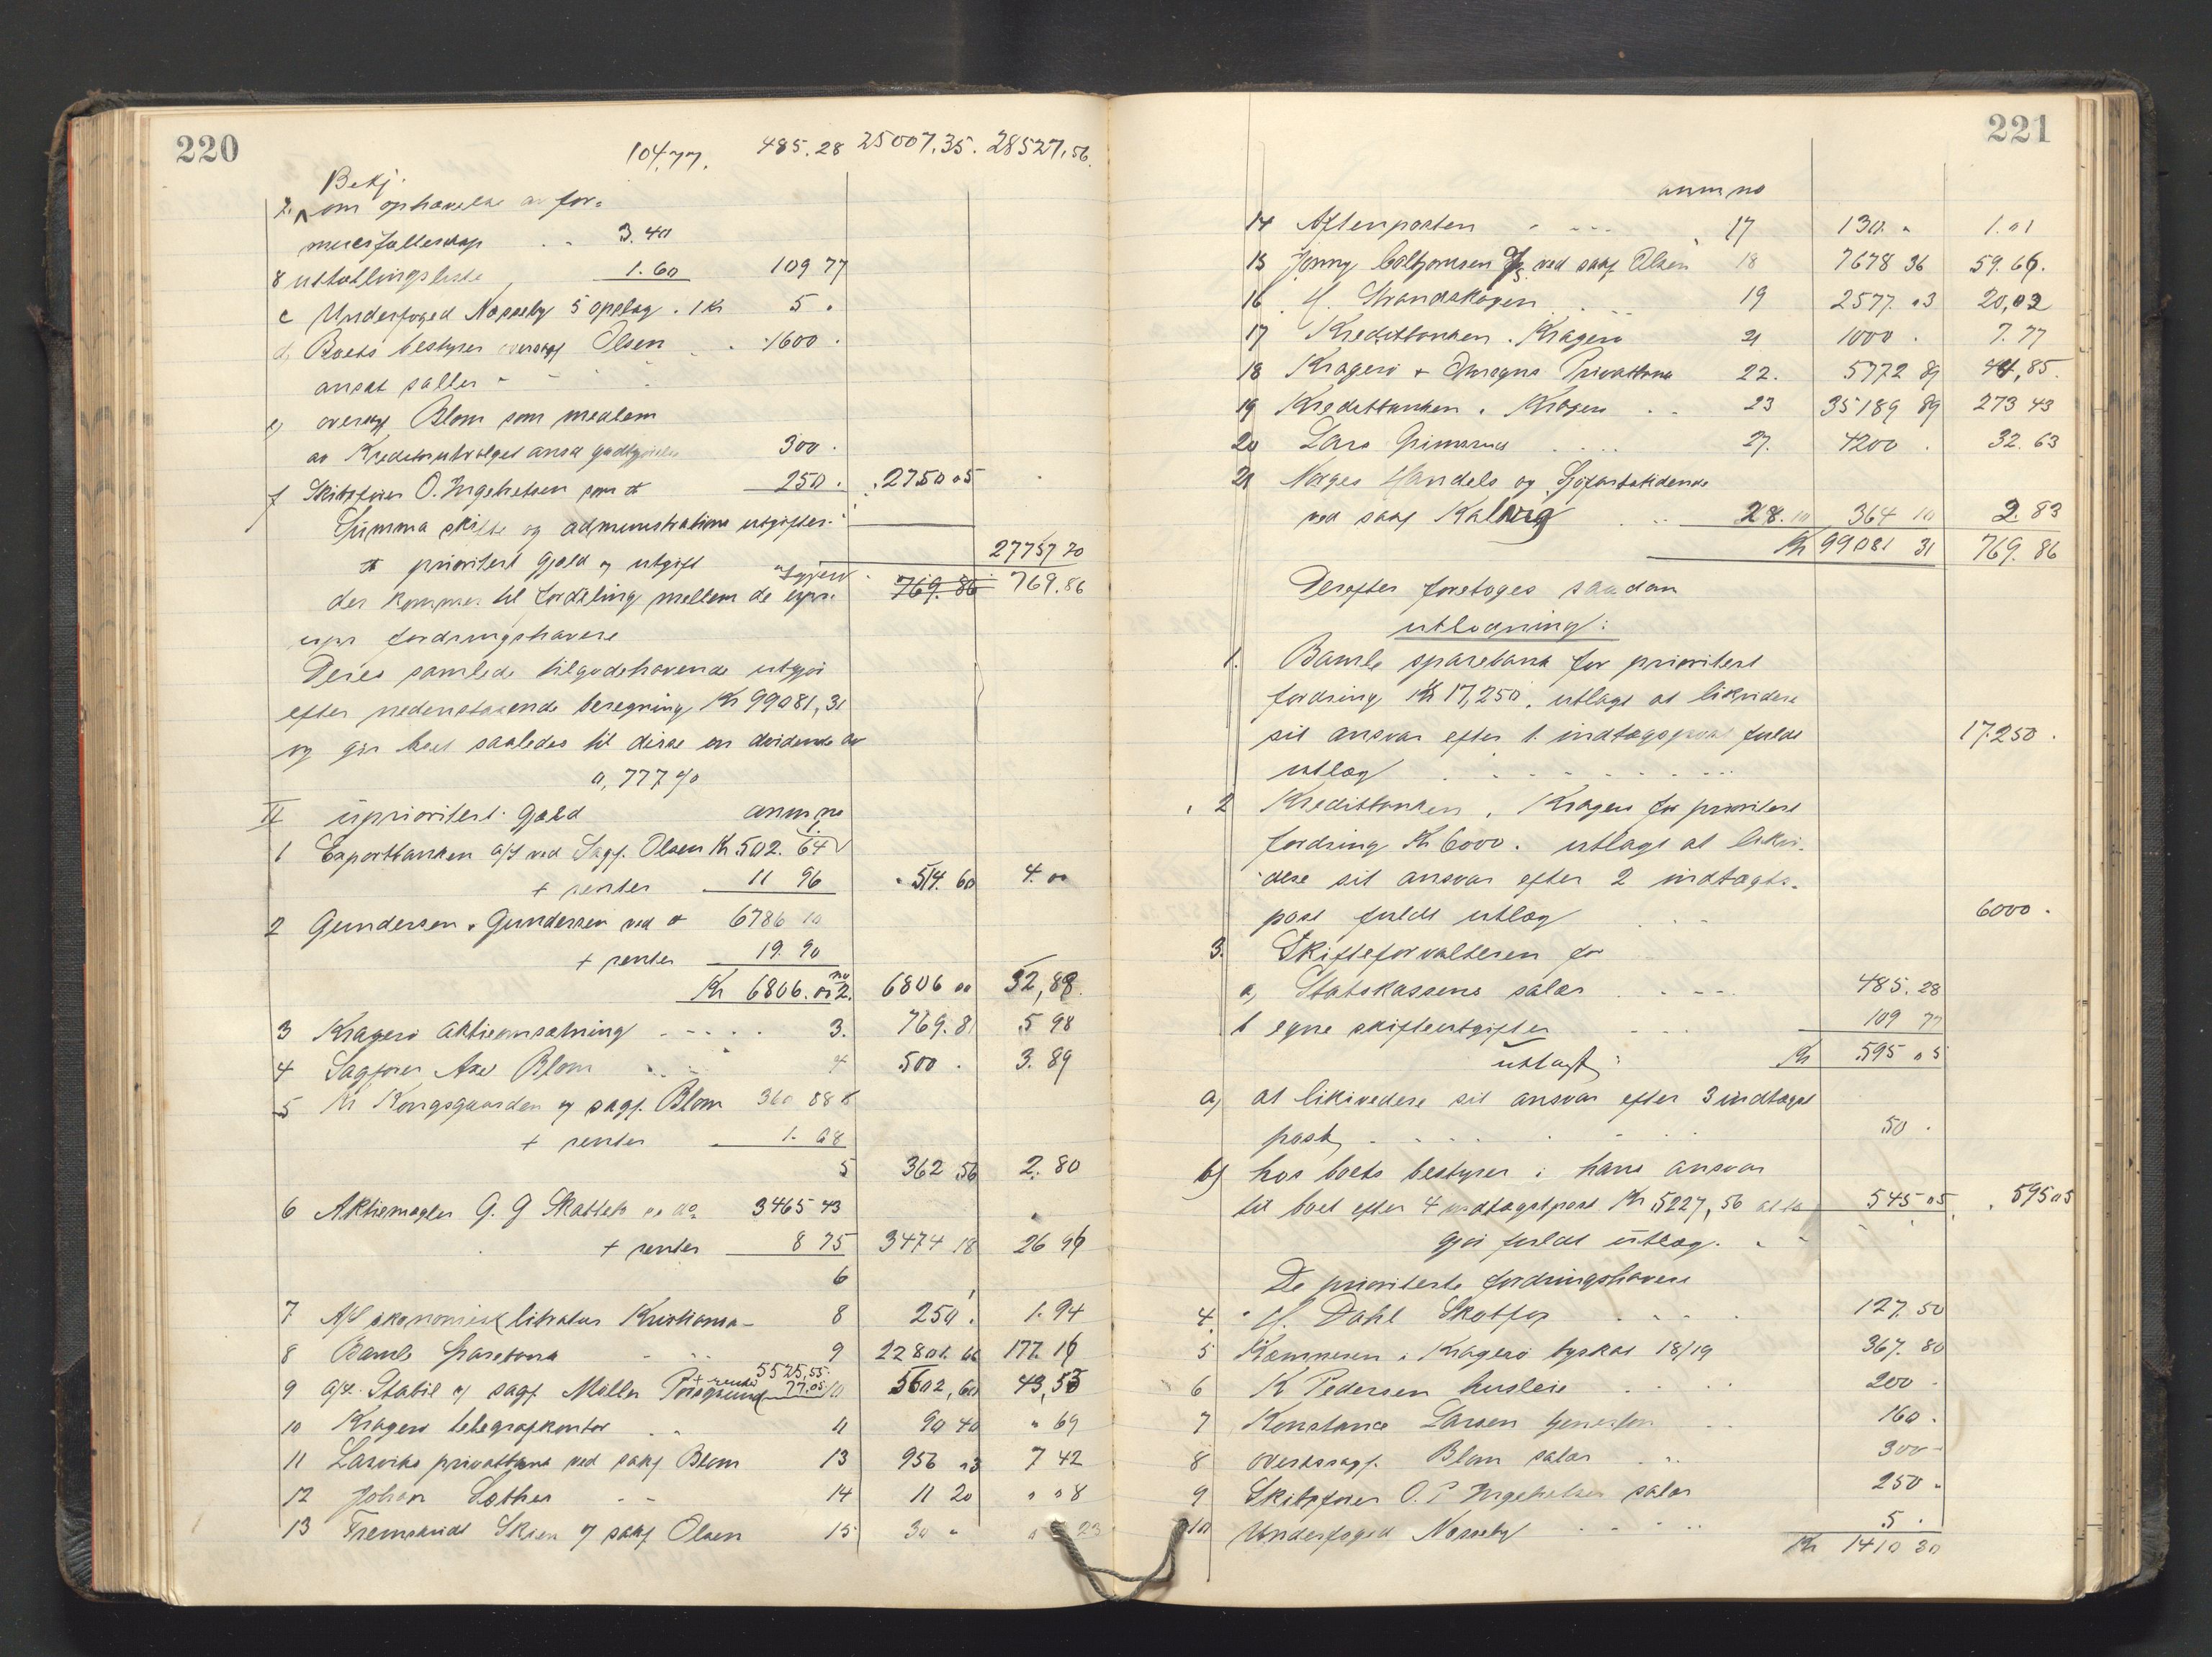 220
104.77. 485.28 25007.35. 28527,56.
Bekj.
7. om ophævelse av for-
muesfællesskap . . 3.40
8 utlodlingsliste 1.60 109 77
c Underfoged Næsseby 5 opslag . 1 kr 5 .
d, Boets bestyrer oversagf Olsen . . 1600 .
ansat salær - - - -
e, oversagf Blom som medlem
av Kreditorutvalget ansat godtgjørelse 300 .
f Skibsfører O. Ingebretsen som do 250 . 2750 05
Summa skifte og administrations utgifter.
do prioritert gjæld og utgift 27757 70
utgjør
der kommer til fordeling mellem de upri- 769.86 769.86
upri fordringshavere
Deres samlede tilgodehavende utgjør
efter nedenstaaende beregning Kr 99081,31
og gir boet saaledes til disse en dividende av
0,777 %
II uprioritert gjæld anm no
1 Exportbanken A/S ved Sagf. Olsen Kr 502. 64 1
+ renter 11 96 514. 60 4. 00
2 Gundersen & Gundersen ved do 6786 10
+ renter 19. 90
Kr 6806. 00 no 2. 6806 00 52,88.
3 Kragerø Aktieomsætning - - - . . 3. 769. 81 5 98
4 Sagfører Axel Blom . . . 4 500 . 3. 89
5 Kr Kongsgaarden v/ sagf. Blom 360 88
+ renter 1. 68
5 362 56 2. 80
6 Aktiemægler G. G Skattebo 3465 43
+ renter 8 75 3474 18 26 99
6
7 A/S økonomisk litratur Kristiania - 8 250 . 1. 94
8 Bamle Sparebank 9 22801. 66 177. 16
5525,55.
9 A/S. Stabil v/ sagf. Møller Porsgrund + renter 77.05 10 5602,60 43,53
10 Kragerø telegrafkontor . . 11 90 40 " 69
11 Larviks privatbank ved sagf Blom 13 956 03 7 42
12 Johan Sother - - 14 11 20 " 08
13 Fremskridt Skien v/ sagf Olsen 15 30 " " 23
221
anm no
14 Aftenposten - - - - 17 130. " 1. 01
15 Jonny Colbjørnsen A/S ved sagf Olsen 18 7678 36 59. 66.
16 H. Strandskogen . . . 19 2577. 03 20,02
17 Kreditbanken . Kragerø 21 1000 . 7. 77
18 Kragerø & Omegns Privatbank 22. 5772 89 44,85.
19 Kreditbanken i Kragerø . . 23 35189 89 273 43
20 Lars Grimsrud . . . . 27. 4200 . 32. 63
21 Norges Handels og Sjøfartstidende
ved sagf Kalvig . . 28. 10 364 10 2. 83
Kr 99081 31 769. 86
Derefter foretoges saadan
utlodning:
1. Bamle sparebank for prioritert
fordring Kr 17,250. utlagt at likvidere
sit ansvar efter 1. indtægtspost fuldt 17.250 .
utlæg . - - - - - - . . .
2 Kreditbanken, Kragerø for prioritert
fordring Kr 6000. utlagt at likvi-
dere sit ansvar efter 2 indtægts-
post fuldt utlæg . . . 6000 .
3. Skifteforvalteren for
a, Statskassens salær . - - - 485. 28
b egne skifteutgifter - - - 109 77
utlagt: Kr 595 05
a, at likividere sit ansvar efter 3 indtægt
post - - - - . - . . 50 .
b, hos boets bestyrer i hans ansvar
til boet efter 4 indtægtspost Kr 5227,56 545 05 595 05
gjør fuldt utlæg. - -
De prioriterte fordringshavere
4. H. Dahl Skotfos . . . 127. 50
5 Kæmneren i Kragerø byskat 18/19 367. 80
6 K Pedersen husleie . . . 200 -
7 Konstance Larsen tjenesløn . . 160 .
8 overrsagf. Blom salær . . 300 -
9 Skibsfører O. P Ingebretsen salær 250 .
10 Underfoged Næsseby . - - . . 5 .
Kr 1410 30